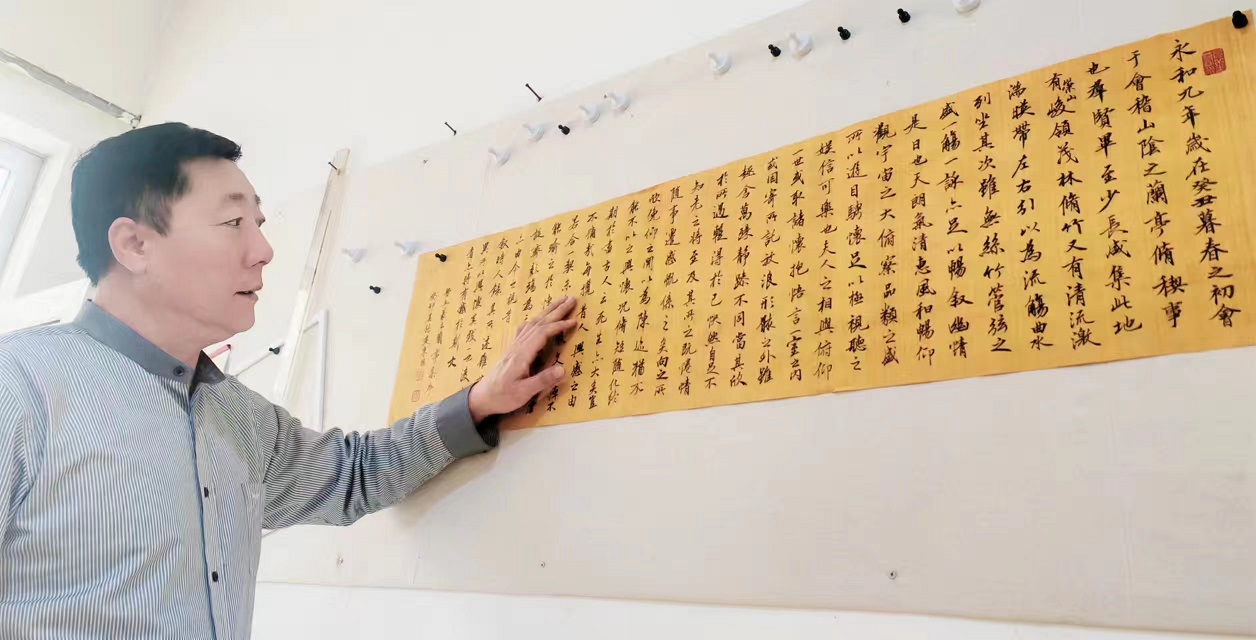 永和九年歲在癸丑暮春之初會
于會稽山陰之蘭亭脩稧事
也羣賢畢至少長咸集此地
有崇山峻領茂林脩竹又有清流激
湍暎帶左右引以為流觴曲水
列坐其次雖無絲竹管弦之
盛一觴一詠亦足以暢敘幽情
是日也天朗氣清惠風和暢仰
觀宇宙之大俯察品類之盛
所以遊目騁懷足以極視聽之
娛信可樂也夫人之相與俯仰
一世或取諸懷抱悟言一室之內
或因寄所託放浪形骸之外雖
趣舍萬殊靜躁不同當其欣
於所遇暫得於己快然自足不
知老之將至及其所之既惓情
隨事遷感慨係之矣向之所
欣俛仰之間以為陳迹猶不
能不以之興懷況脩短隨化終
期於盡古人云死生亦大矣豈
不痛哉每攬昔人興感之由
若合一契未
能喻之於懷
敘時人錄其所述雖
異所以興懷其致一也
者亦將有感於斯文